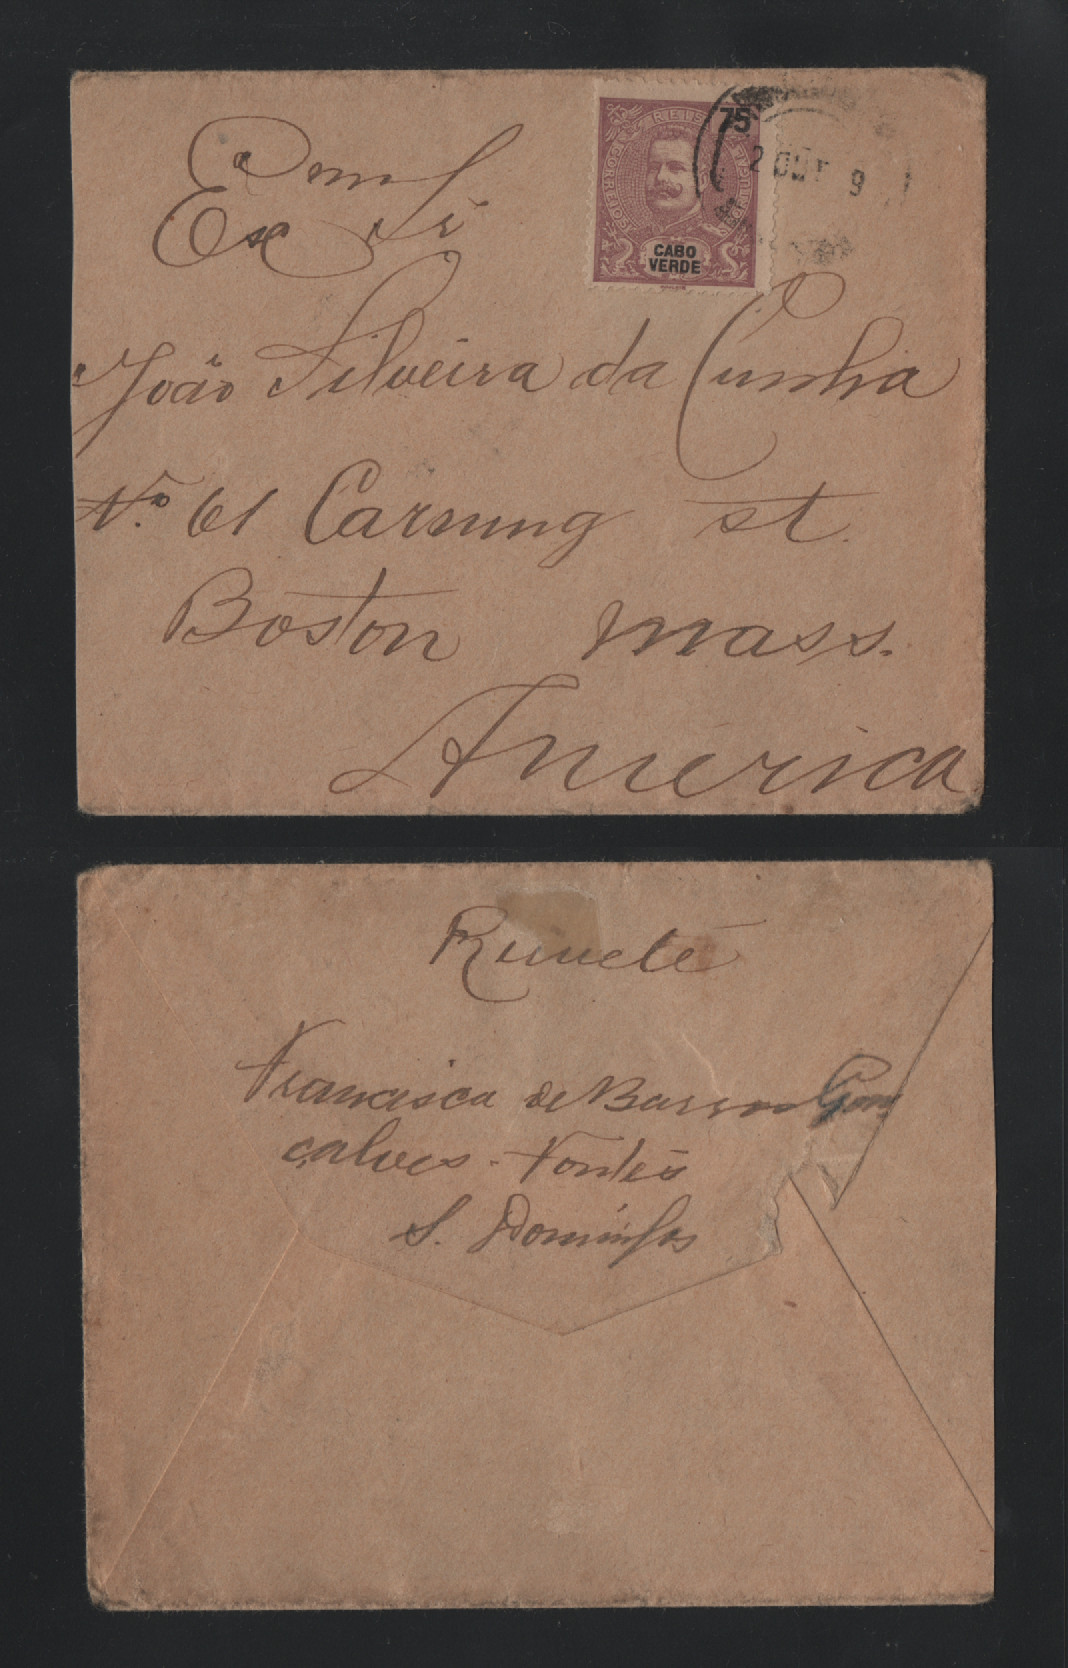 75
REIS
CORREIOS
PORTUGAL
CABO
VERDE
2 OUT 9
Exmo Sr
João Silveira da Cunha
Nº 61 Carnung st.
Boston Mass.
América
Francisca de Barros Gon
çalves Fontes
S. Domingos